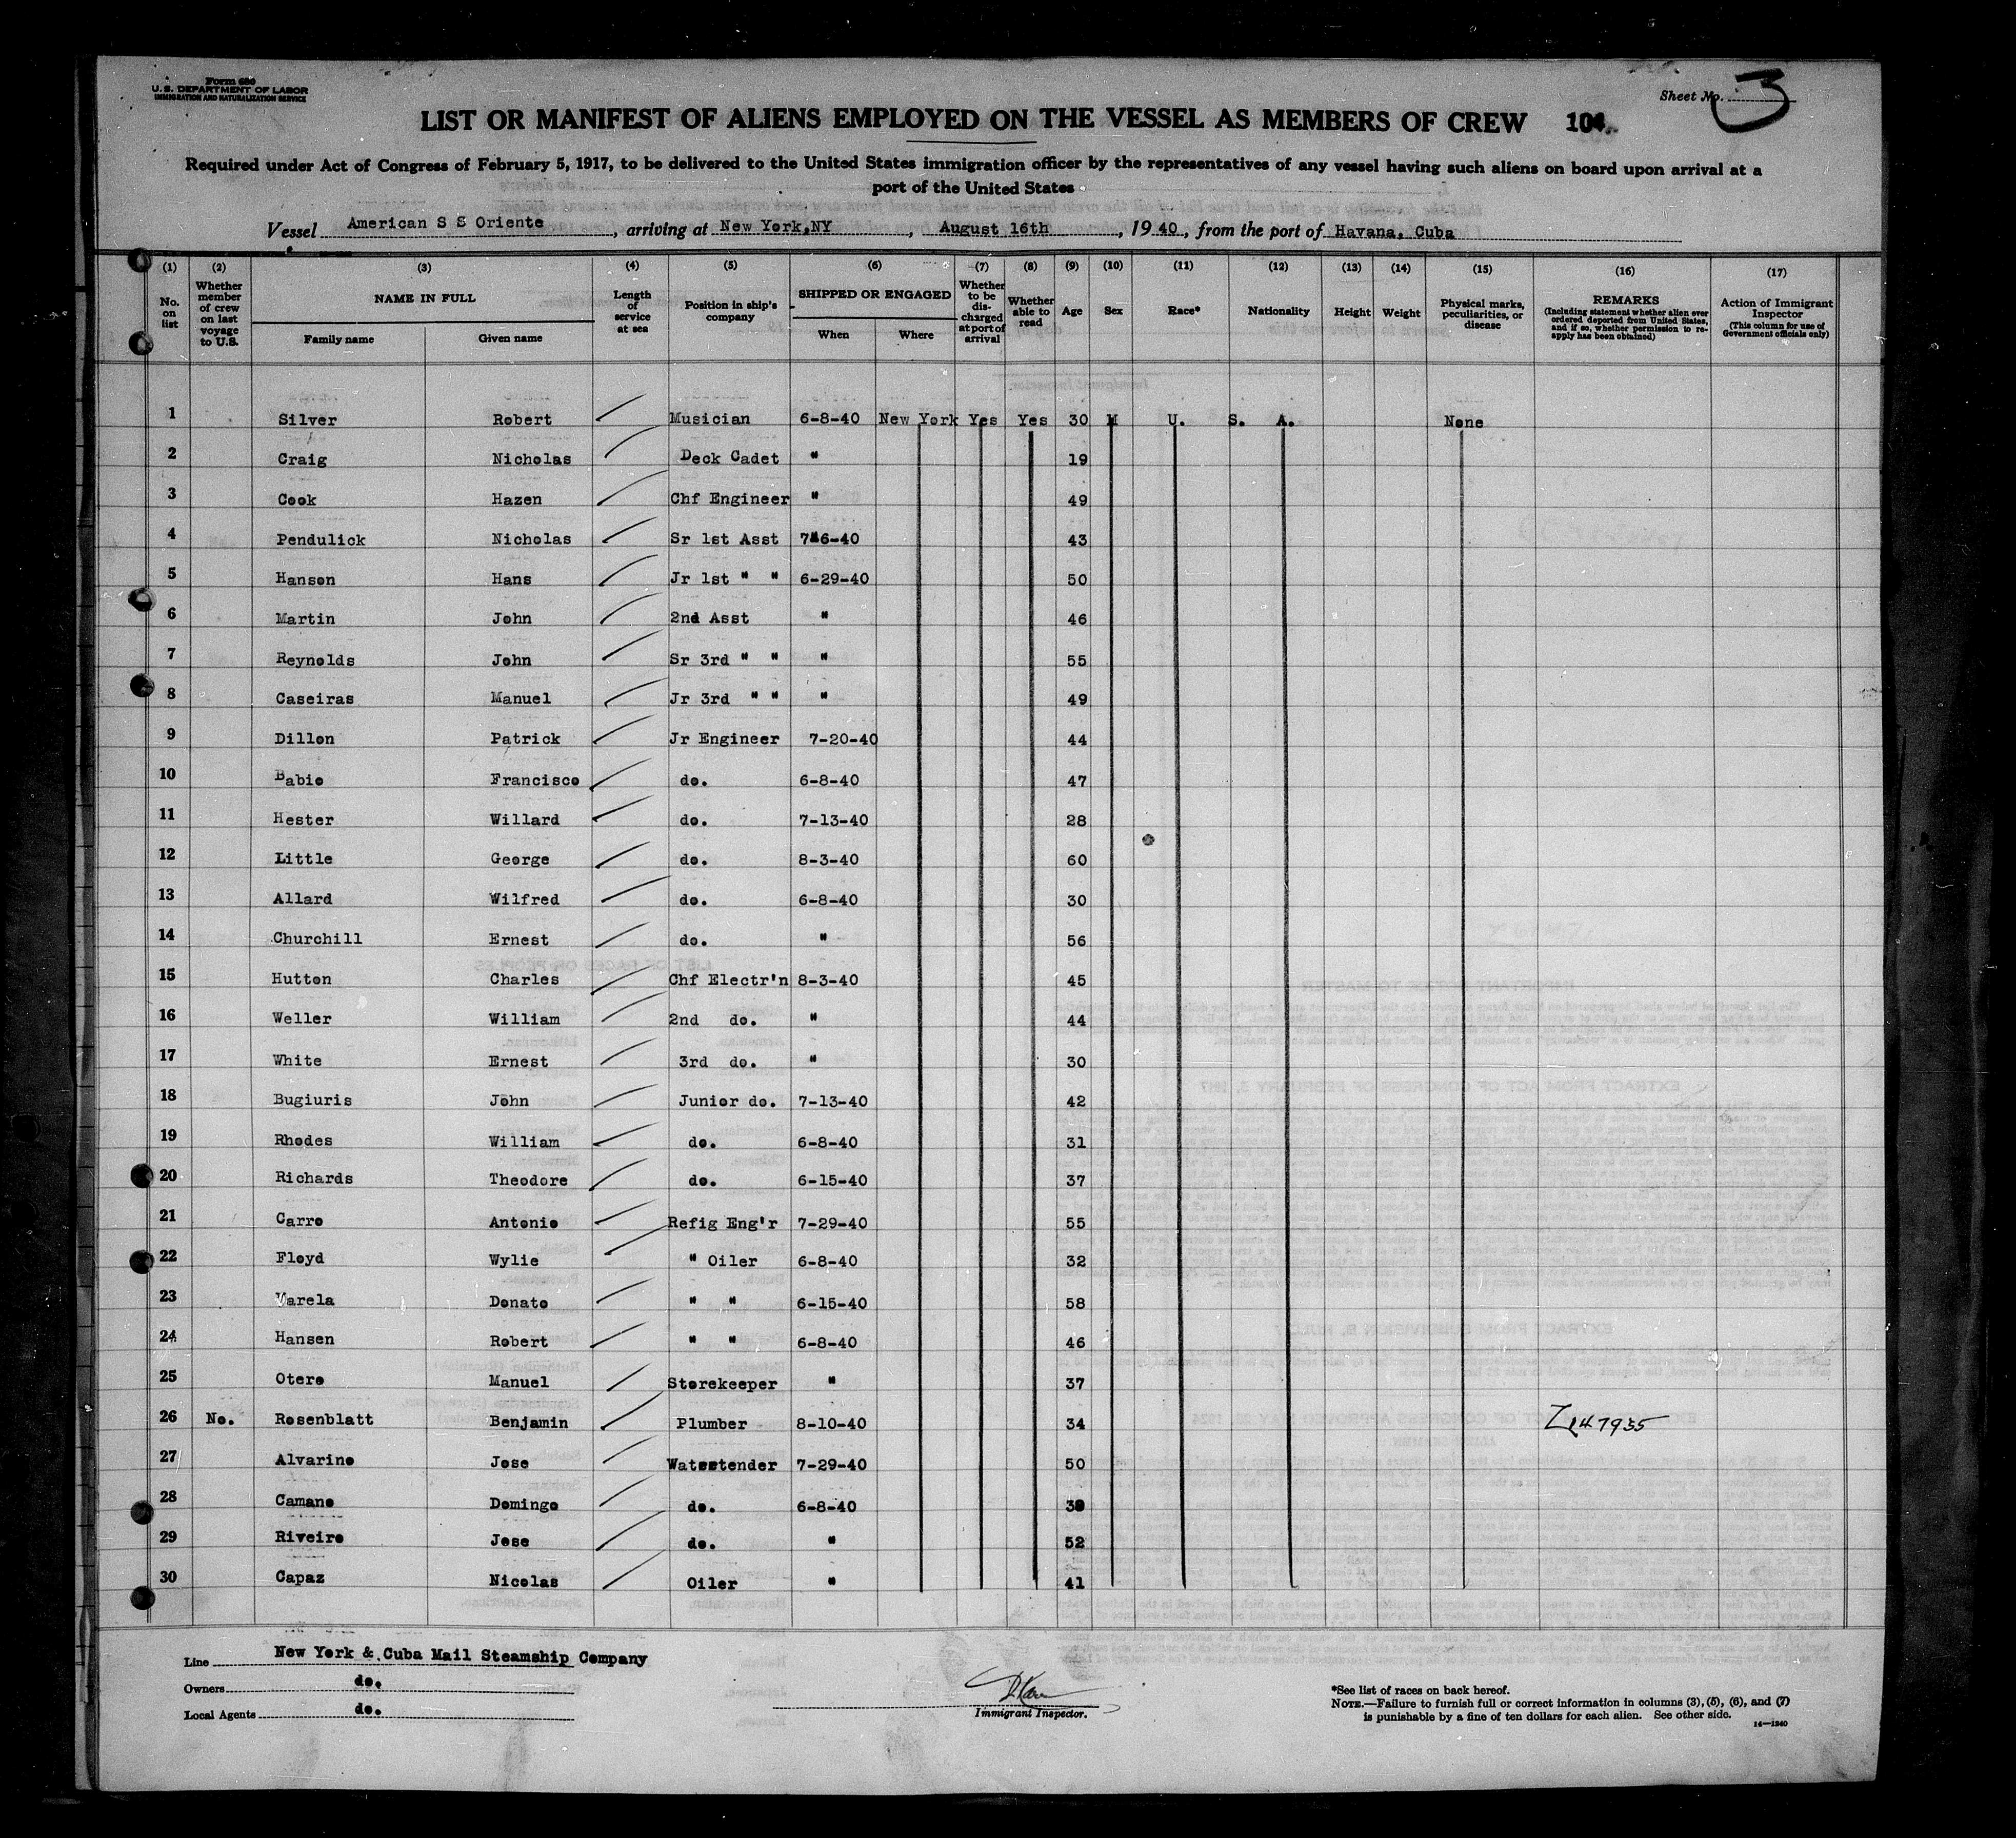 Form 680
U. S. DEPARTMENT OF LABOR
IMMIGRATION AND NATURALIZATION SERVICE
Sheet No. 3
LIST OR MANIFEST OF ALIENS EMPLOYED ON THE VESSEL AS MEMBERS OF CREW
Required under Act of Congress of February 5, 1917, to be delivered to the United States immigration officer by the representatives of any vessel having such aliens on board upon arrival at a
port of the United States
Vessel American S S Oriente, arriving at New York,NY, August 16th, 19 40, from the port of Havana, Cuba
(1) (2) (3) (4) (5) (6) (7) (8) (9) (10) (11) (12) (13) (14) (15) (16) (17)
No. on list
Whether member of crew on last voyage to U.S.
NAME IN FULL
Family name Given name
Length of service at sea
Position in ship's company
SHIPPED OR ENGAGED
When Where
Whether to be discharged at port of arrival
Whether able to read
Age
Sex
Race*
Nationality
Height
Weight
Physical marks, peculiarities, or disease
REMARKS
(Including statement whether alien ever ordered deported from United States, and if so, whether permission to reapply has been obtained)
Action of Immigrant Inspector
(This column for use of Government officials only)
1 Silver Robert Musician 6-8-40 New York Yes Yes 30 M U. S. A. None
2 Craig Nicholas Deck Cadet " 19
3 Cook Hazen Chf Engineer " 49
4 Pendulick Nicholas Sr 1st Asst 7-6-40 43
5 Hanson Hans Jr 1st " " 6-29-40 50
6 Martin John 2nd Asst " 46
7 Reynolds John Sr 3rd " " " 55
8 Caseiras Manuel Jr 3rd " " " 49
9 Dillon Patrick Jr Engineer 7-20-40 44
10 Babio Francisco do. 6-8-40 47
11 Hester Willard do. 7-13-40 28
12 Little George do. 8-3-40 60
13 Allard Wilfred do. 6-8-40 30
14 Churchill Ernest do. " 56
15 Hutton Charles Chf Electr'n 8-3-40 45
16 Weller William 2nd do. " 44
17 White Ernest 3rd do. " 30
18 Bugiuris John Junior do. 7-13-40 42
19 Rhodes William do. 6-8-40 31
20 Richards Theodore do. 6-15-40 37
21 Carro Antonio Refig Eng'r 7-29-40 55
22 Floyd Wylie " Oiler 6-8-40 32
23 Varela Donato " " 6-15-40 58
24 Hansen Robert " " 6-8-40 46
25 Otero Manuel Storekeeper " 37
26 No. Rosenblatt Benjamin Plumber 8-10-40 34 Z147935
27 Alvarino Jose Watertender 7-29-40 50
28 Camano Domingo do. 6-8-40
29 Riveiro Jose do. " 52
30 Capaz Nicolas Oiler " 41
Line New York & Cuba Mail Steamship Company
Owners do.
Local Agents do.
Immigrant Inspector.
*See list of races on back hereof.
NOTE.—Failure to furnish full or correct information in columns (3), (5), (6), and (7)
is punishable by a fine of ten dollars for each alien. See other side.
14—1240